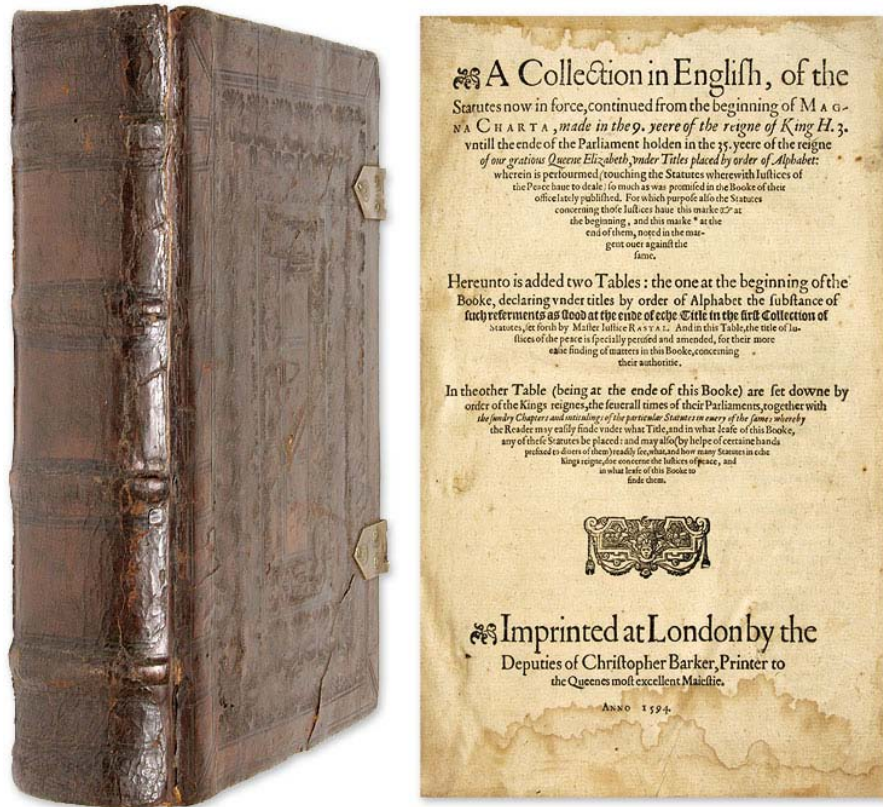 A Collection in Engliſh, of the
Statutes now in force, continued from the beginning of MAG-
NA CHARTA, made in the 9. yeere of the reigne of King H. 3.
vntill the ende of the Parliament holden in the 35. yeere of the reigne
of our gratious Queene Elizabeth, vnder Titles placed by order of Alphabet:
wherein is perfourmed (touching the Statutes wherewith Iuſtices of
the Peace haue to deale) ſo much as was promiſed in the Booke of their
office lately publiſhed. For which purpoſe alſo the Statutes
concerning thoſe Iuſtices haue this marke ☞ at
the beginning, and this marke * at the
end of them, noted in the mar-
gent ouer againſt the
ſame.
Hereunto is added two Tables: the one at the beginning of the
Booke, declaring vnder titles by order of Alphabet the ſubſtance of
ſuch referments as ſtood at the ende of eche Title in the firſt Collection of
Statutes, ſet forth by Maſter Iuſtice RASTAL. And in this Table, the title of Iu-
ſtices of the peace is ſpecially peruſed and amended, for their more
eaſie finding of matters in this Booke, concerning
their authoritie.
In the other Table (being at the ende of this Booke) are ſet downe by
order of the Kings reignes, the ſeuerall times of their Parliaments, together with
the ſundry Chapters and intitulings of the particular Statutes in euery of the ſame: whereby
the Reader may eaſily finde vnder what Title, and in what leafe of this Booke,
any of theſe Statutes be placed: and may alſo (by helpe of certaine hands
prefixed to diuers of them) readily ſee, what, and how many Statutes in eche
Kings reigne, doe concerne the Iuſtices of peace, and
in what leafe of this Booke to
finde them.
Imprinted at London by the
Deputies of Chriſtopher Barker, Printer to
the Queenes moſt excellent Maieſtie.
ANNO 1594.